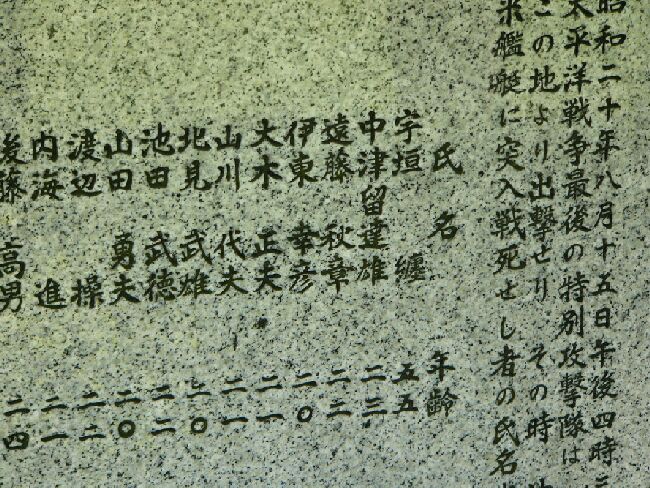 昭和二十年八月十五日午後四時
太平洋戦争最後の特別攻撃隊は
この地より出撃せり その時
米艦艇に突入戦死せし者の氏名
氏名 年齢
宇垣 纏 五五
中津留達雄 二三
遠藤 秋章 二二
伊東 幸彦 二〇
大木 正夫 二一
山川 代夫 二一
北見 武雄 二〇
池田 武徳 二二
山田 勇夫 二〇
渡辺 操 二二
内海 進 二一
後藤 高男 二四